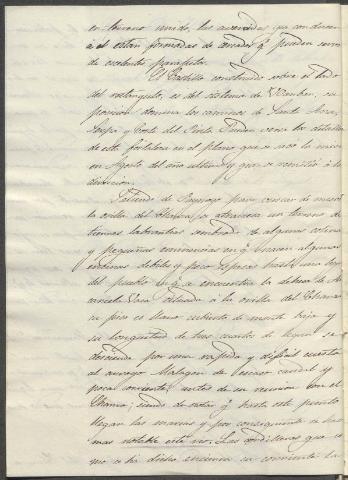 en terreno unido, las avenidas que conducen
á él están formadas de cercados q.e pueden servir
de excelentes parapetos.
El Castillo construido sobre el lado
del rectangulo, es del sistema de Vauban, su
posicion domina los caminos de Santa Ana,
y Corte del Pinto. Pueden verse los detalles
de esta fortaleza en el plano que se
en Agosto del año ultimo y que se remitió á la
direccion.
Saliendo de Paymogo para
la orilla del Chanza, se atraviesa un terreno de
tierras labrantias sembrado de algunas colinas
y pequeñas eminencias en q.e hacen algunas
encinas debiles y poco espesas hasta una legua
del pueblo en q.e se encuentra la dehesa de
situada á la orilla del Chanza
su piso es llano cubierto de monte bajo y
su longitud de tres cuartos de legua se
desciende por una rapida y dificil cuesta
al arroyo Malagon de escaso caudal y
poca corriente antes de su reunion con el
Chanza; siendo de notar q.e hasta este punto
llegan las mareas y por consiguiente se hace
mas notable este rio. Las cordilleras que co-
mo se ha dicho encierran su corriente la